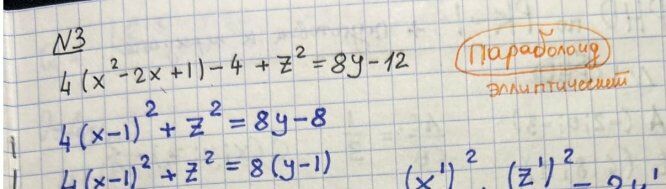 N3
4(x²-2x+1)-4+z²=8y-12
Параболоид
эллиптический
4(x-1)²+z²=8y-8
4(x-1)²+z²=8(y-1)